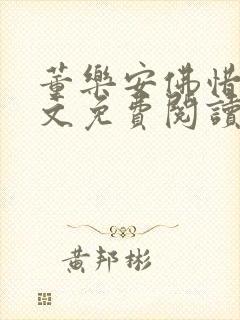 董樂安佛惜
文免費閱讀
黃邦彬